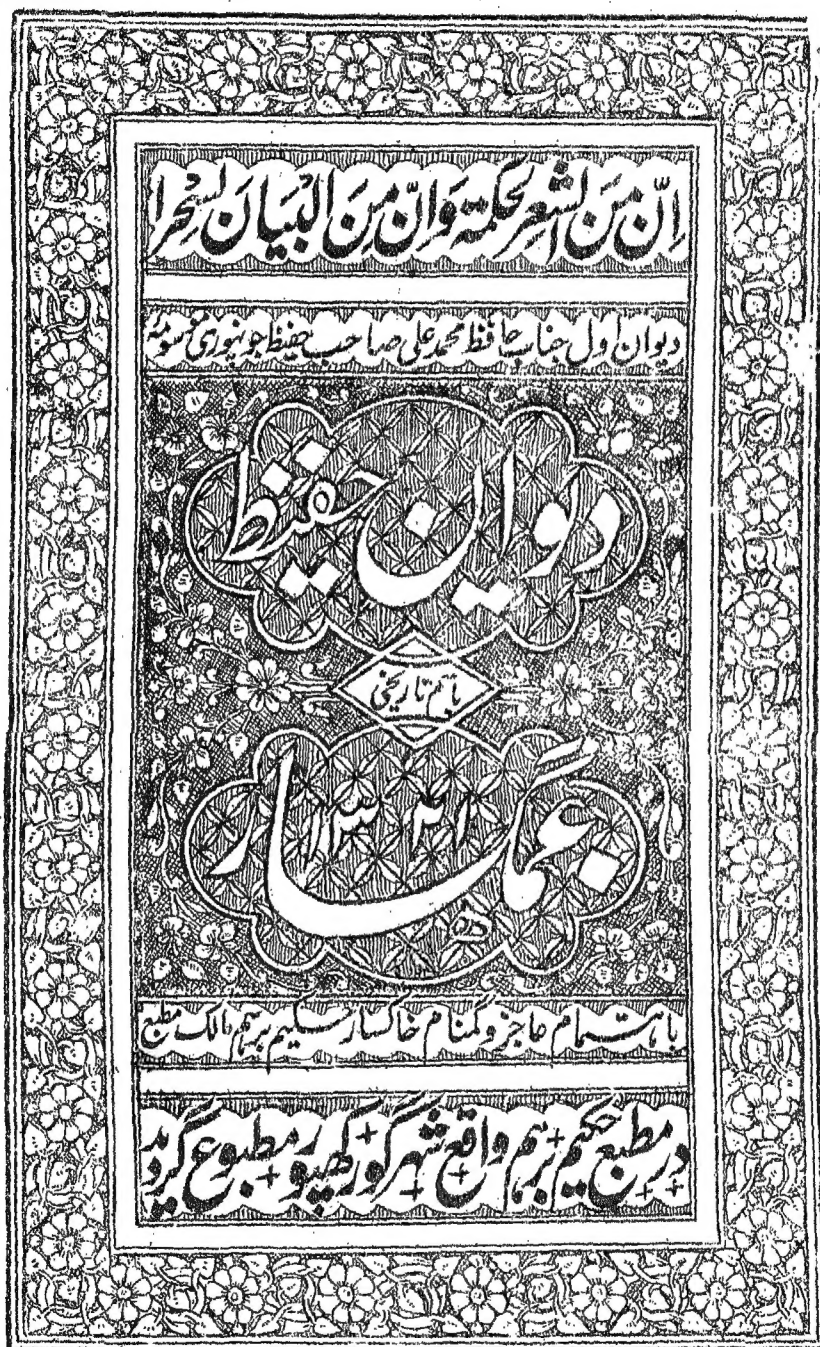 اِنّ مِنَ الشعرِ لحکمة وَاِنّ مِنَ البَیَانِ لسِحرا
دیوان اول جناب حافظ محمد علی صاحب حفیظ جونپوری موسومہ
دیوان حفیظ
باسم تاریخی
غمگسار
۱۳۲۱
باہتمام عاجز و گمنام خاکسار حکیم برہم مالک مطبع
در مطبع حکیم برہم واقع شہر گورکھپور مطبوع گردید